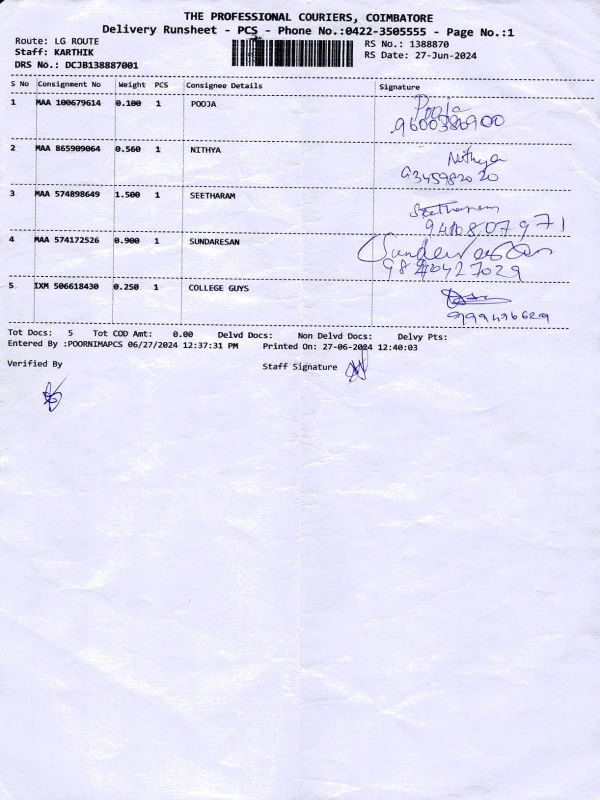 THE PROFESSIONAL COURIERS, COIMBATORE
Delivery Runsheet - PCS - Phone No.:0422-3505555 - Page No.:1
Route: LG ROUTE
RS No.: 1388870
Staff: KARTHIK
RS Date: 27-Jun-2024
DRS No.: DCJB138887001
S No Consignment No Weight PCS Consignee Details Signature
1 MAA 100679614 0.100 1 POOJA Pooja
9600386900
2 MAA 865909064 0.560 1 NITHYA Nithya
9345982020
3 MAA 574898649 1.500 1 SEETHARAM Seetharam
4 MAA 574172526 0.900 1 SUNDARESAN
5 IXM 506618430 0.250 1 COLLEGE GUYS
Tot Docs: 5 Tot COD Amt: 0.00 Delvd Docs: Non Delvd Docs: Delvy Pts:
Entered By :POORNIMAPCS 06/27/2024 12:37:31 PM Printed On: 27-06-2024 12:40:03
Verified By
Staff Signature